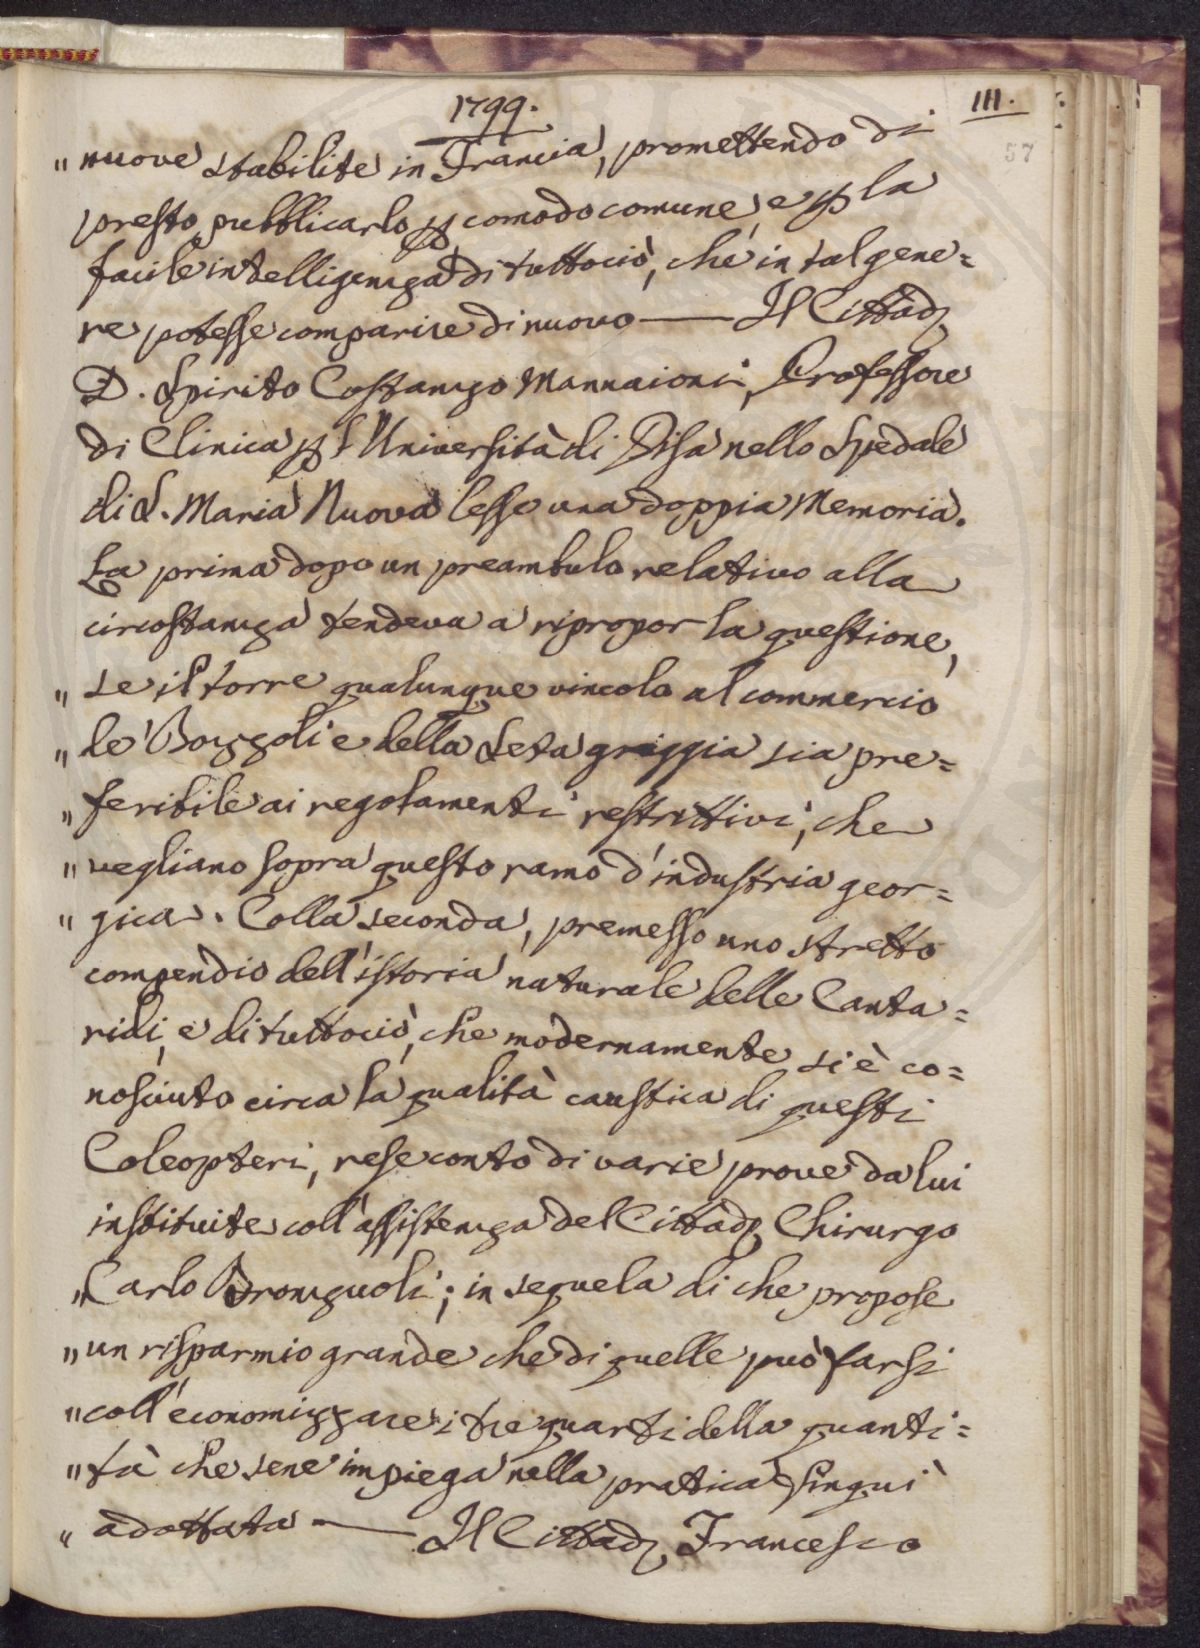 1799.
111.
57
" nuove stabilite in Francia, promettendo di
presto pubblicarlo p comodo comune, e p la
facile intelligenza di tuttociò, che in tal gene=
re potesse comparire di nuovo — Il Cittad.
D. Spirito Costanzo Mannaioni, Professore
di Clinica p l'Università di Pisa nello Spedale
di S. Maria Nuova lesse una doppia Memoria.
La prima dopo un preambulo relativo alla
circostanza tendeva a ripropor la questione,
" se il torre qualunque vincolo al commercio
" de' Bozzoli e della Seta greggia sia pre=
" feribile ai regolamenti restrittivi, che
" vegliano sopra questo ramo d'industria geor=
" gica. Colla seconda, premesso uno stretto
compendio dell'istoria naturale delle Canta=
ridi, e di tuttociò, che modernamente si è co=
nosciuto circa la qualità caustica di questi
Coleopteri, rese conto di varie prove da lui
instituite coll'assistenza del Cittad. Chirurgo
" Carlo Bronzuoli; in sequela di che propose
" un risparmio grande che di quelle può farsi
" coll'economizzare i tre quarti della quanti=
" tà che sene impiega nella pratica finqui
" adottata. — Il Cittad. Francesco